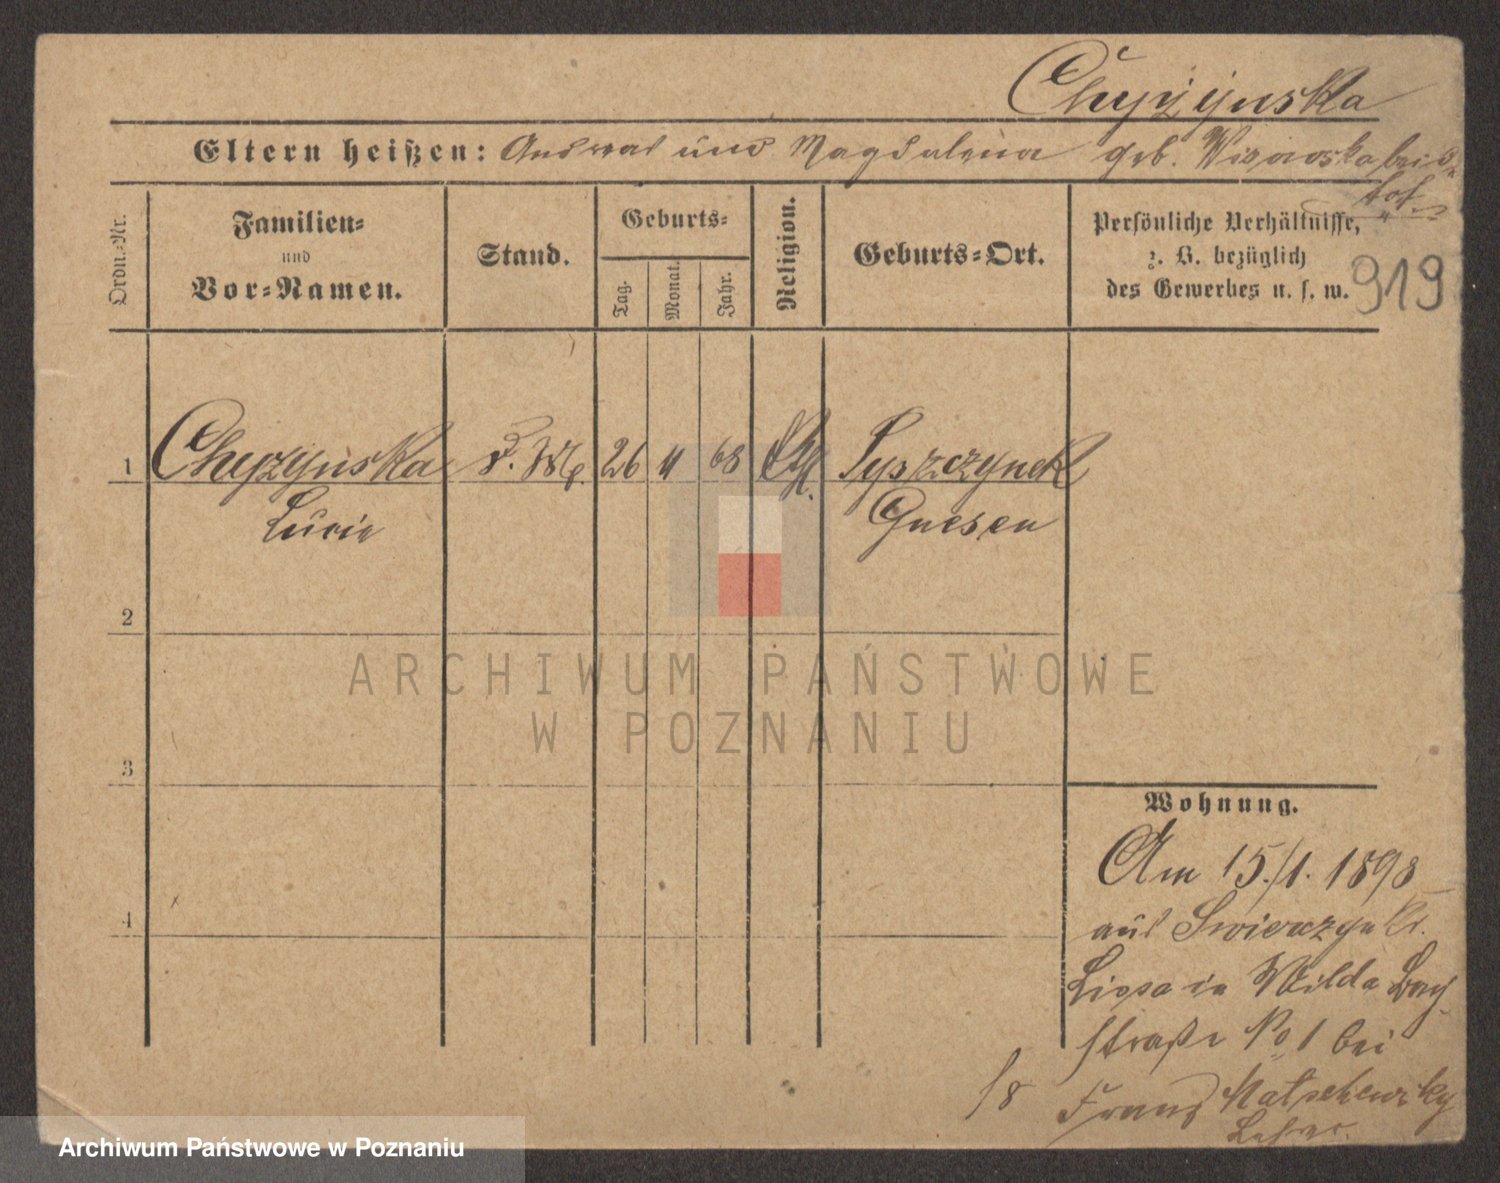 Chyżynska
Eltern heißen: Andreas und Magdalena geb. Wisowska beide
tot
Ordn.-Nr.
Familien-
und
Vor-Namen.
Stand.
Geburts-
Tag.
Monat.
Jahr.
Religion.
Geburts-Ort.
Persönliche Verhältnisse,
z. B. bezüglich
des Gewerbes u. s. w.
919
1 Chyzynska 26 11 68 Pyszczynek
Lucie Gnesen
2
ARCHIWUM PAŃSTWOWE
W POZNANIU
3
4
Wohnung.
Am 15./1. 1898
aus Swierczyn Kr.
Lissa in Wilda Bach
straße No 1 bei
Franz Matschewsky
Lehrer.
18
Archiwum Państwowe w Poznaniu